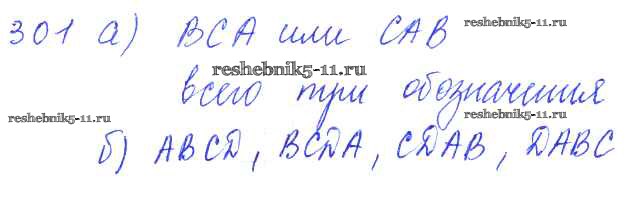 301 а) BCA или CAB
reshebnik5-11.ru
reshebnik5-11.ru
всего три обозначения
reshebnik5-11.ru
reshebnik5-11.ru
б) ABCD, BCDA, CDAB, DABC